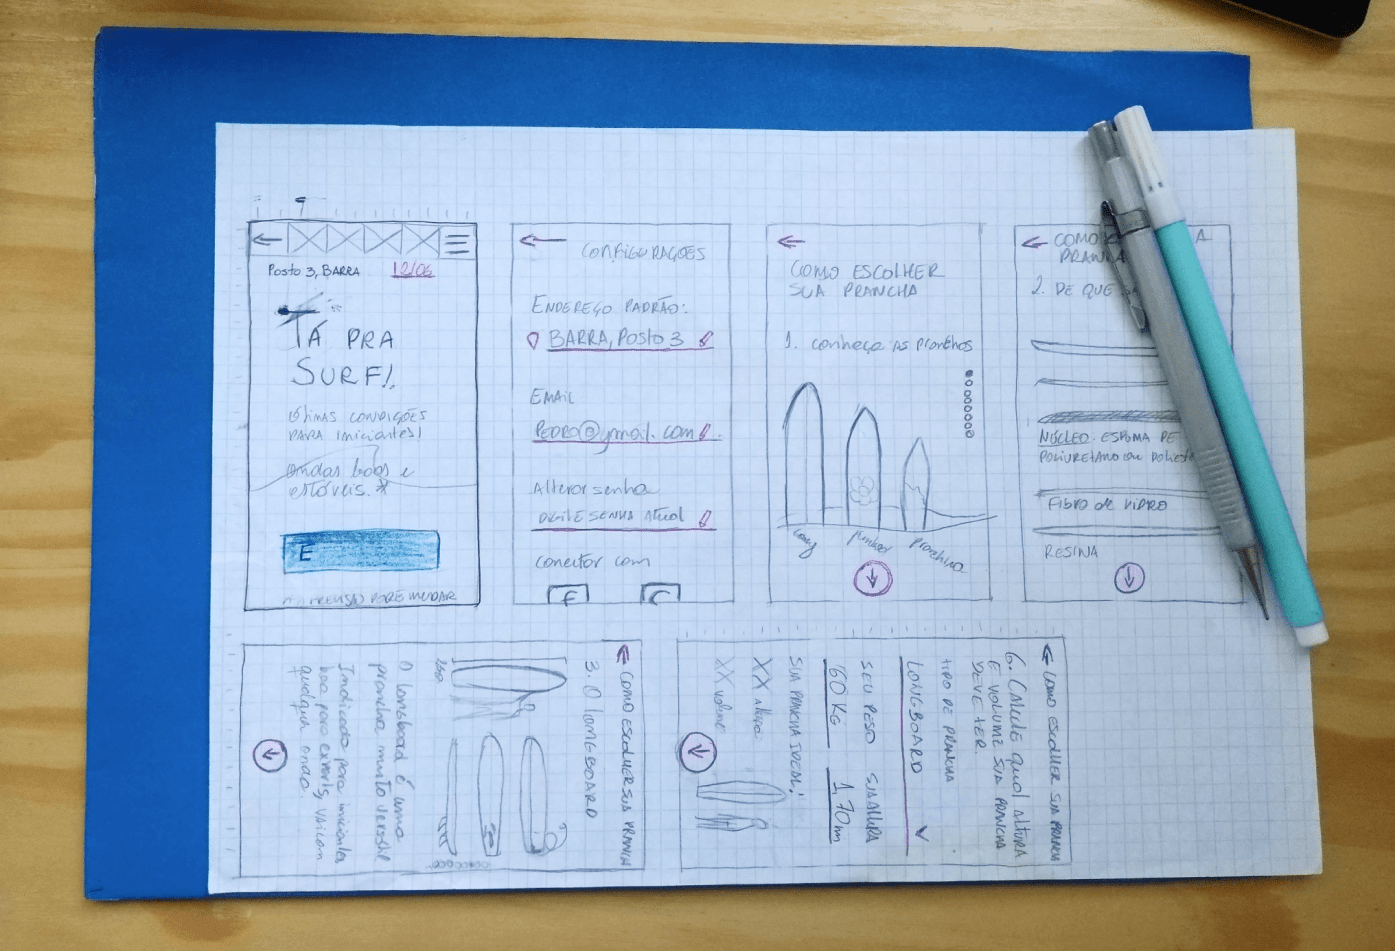 Posto 3, BARRA 12/06
TÁ PRA
SURF!
ÓTIMAS CONDIÇÕES
PARA iniciANTES!
ondas boas e
estáveis.
E
PARE MUDAR
CONFIGURAÇÕES
ENDEREÇO PADRÃO:
BARRA, Posto 3
EMAIL
PEDRO@gmail.com
Alterar senha
DIGITE SENHA Atual
conectar com
F
G
COMO ESCOLHER
SUA PRANCHA
1. conheça AS PRANCHAS
long
funboard
pranchinha
COMO A
PRANCHA
2. DE QUE
NÚCLEO ESPUMA DE
POLIURETANO OU
FIBRA de VIDRO
RESINA
COMO ESCOLHER SUA PRANCHA
3. O LONGBOARD
O longboard é uma
prancha muito versátil
Indicado para iniciantes
boa para experts, vai em
qualquer onda.
COMO ESCOLHER SUA PRANCHA
6. Calcule qual ALTURA
E VOLUME SUA PRANCHA
DEVE TER.
TIPO DE PRANCHA
LONGBOARD
SEU PESO SUA ALTURA
60 KG 1,70m
SUA PRANCHA IDEAL:
XX altura
XX volume